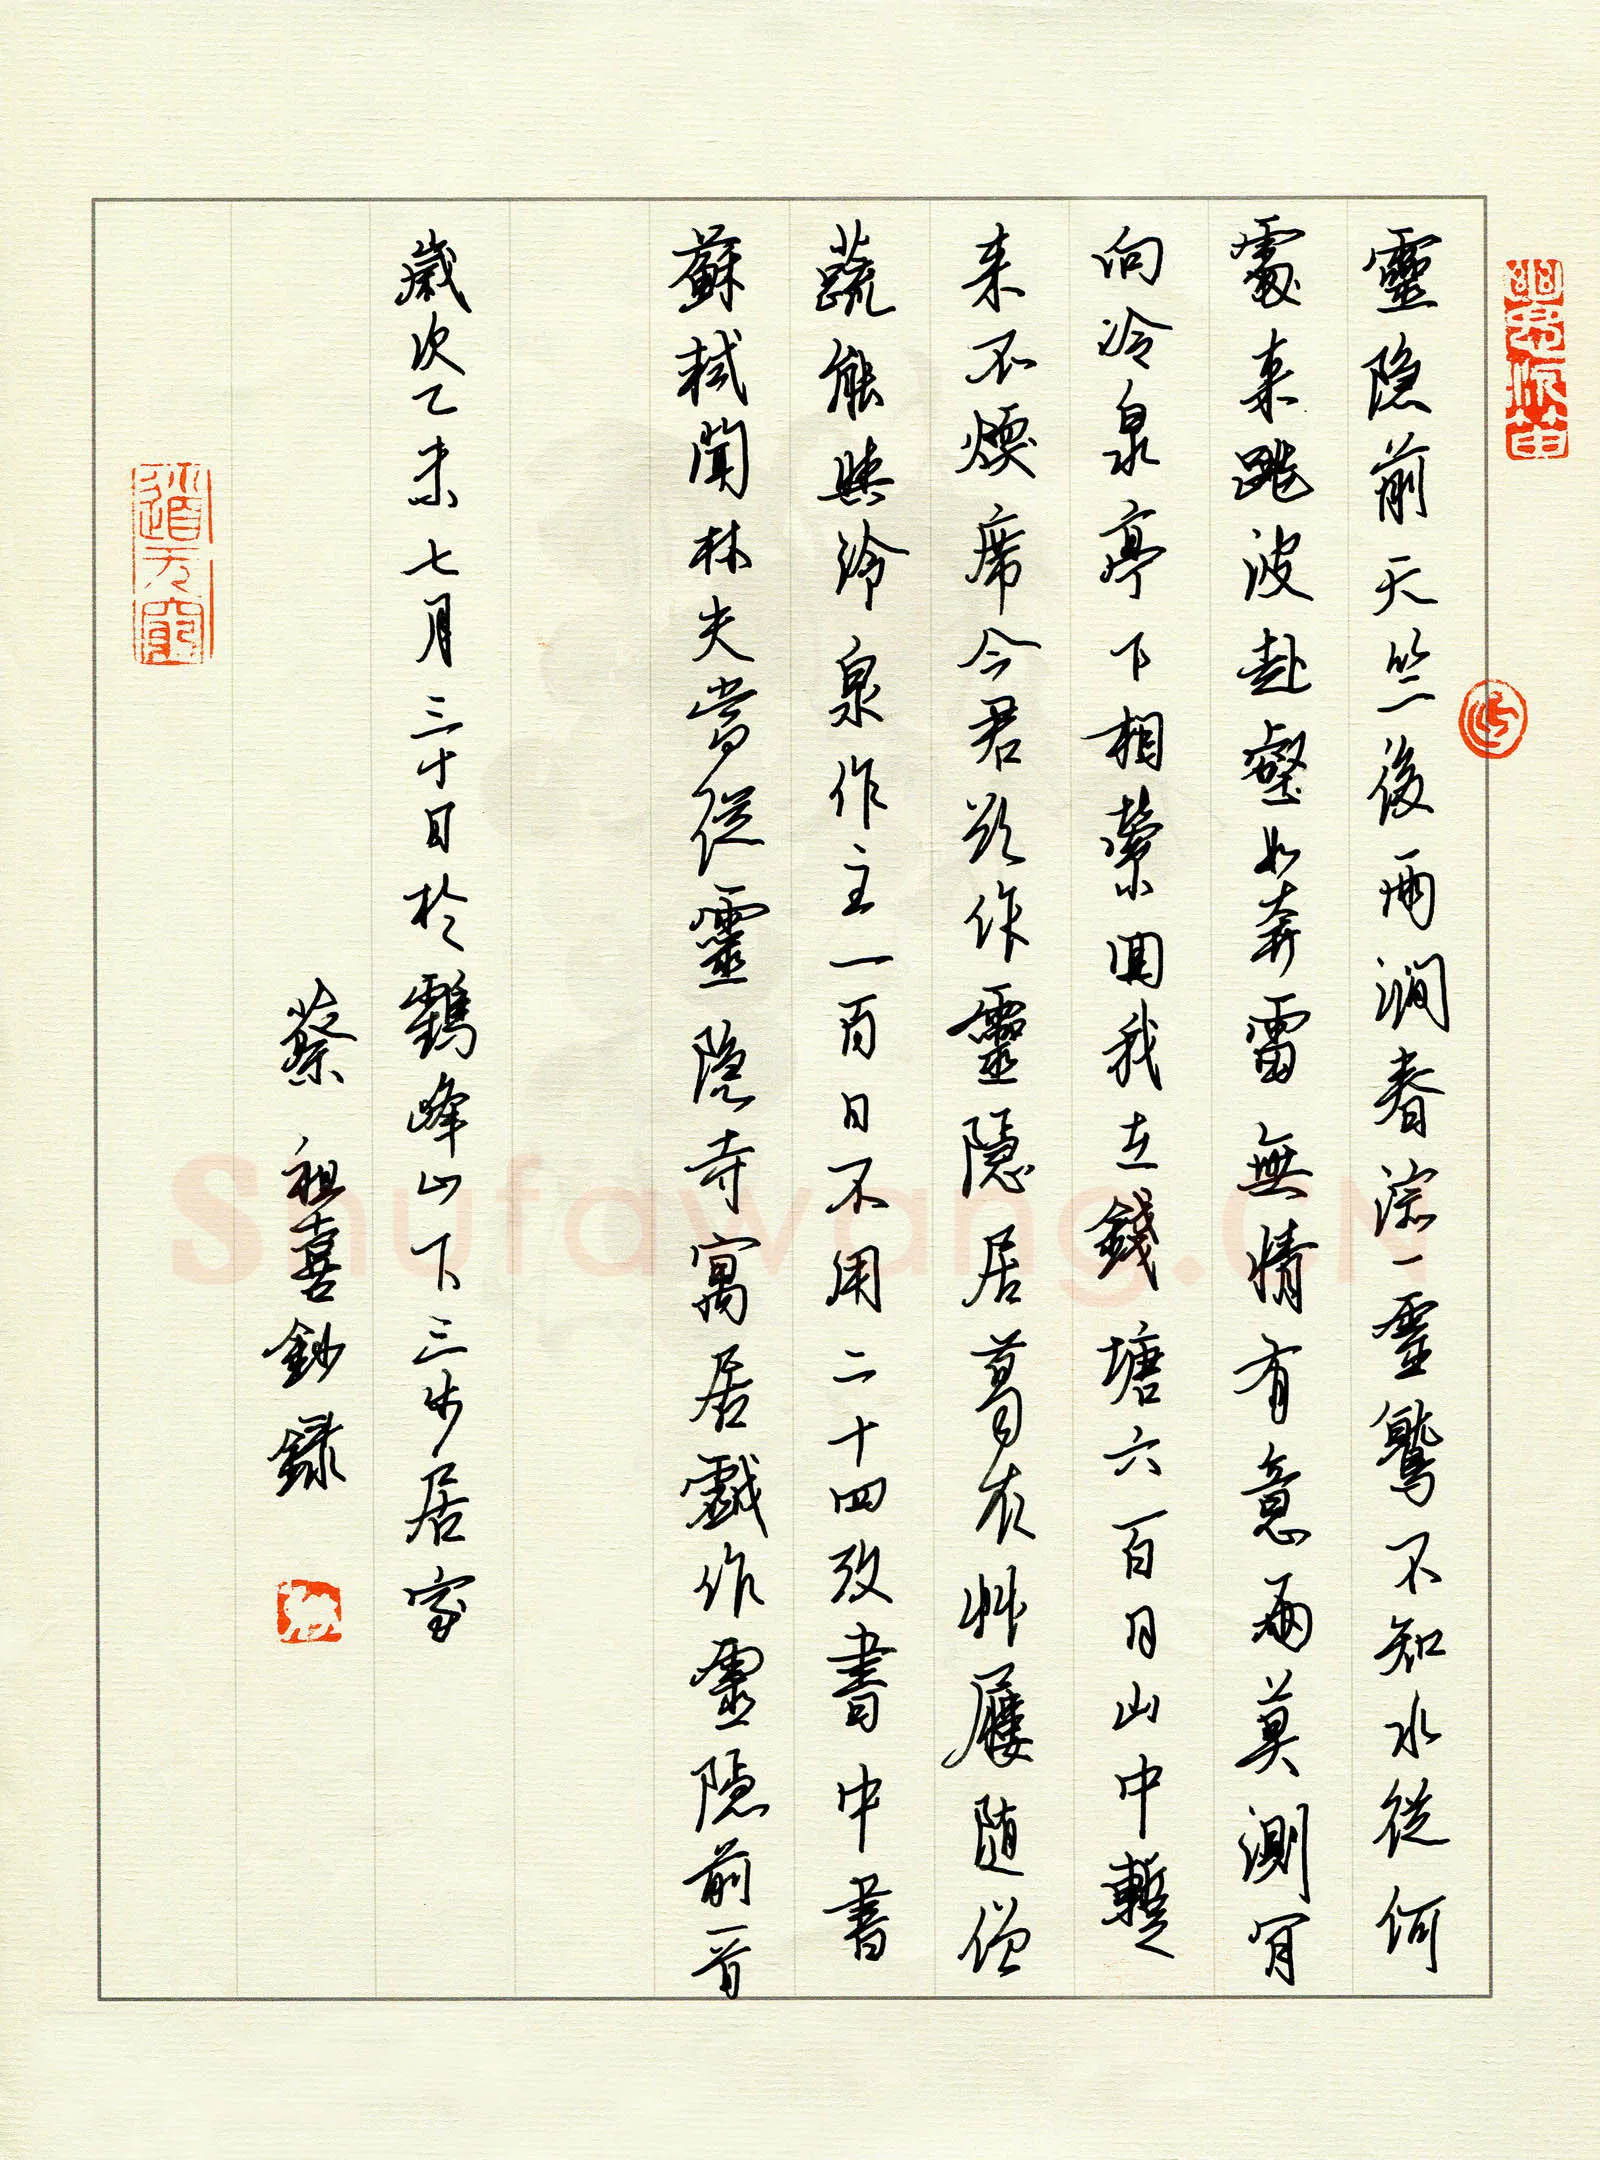 靈隐前天竺後兩澗春淙一靈鷲不知水從何
處来跳波赴壑如奔雷無情有意兩莫測肎
向冷泉亭下相縈回我在錢塘六百日山中暫
来不煗席今君欲作靈隱居葛衣艸屨随僧
蔬能與冷泉作主一百日不用二十四攷書中書
蘇軾聞林夫當從靈隐寺寓居戲作靈隱前一首
歲次乙未七月三十日於靏峰山下三步居室
蔡祖喜鈔録
道无窮
Shufawang.CN